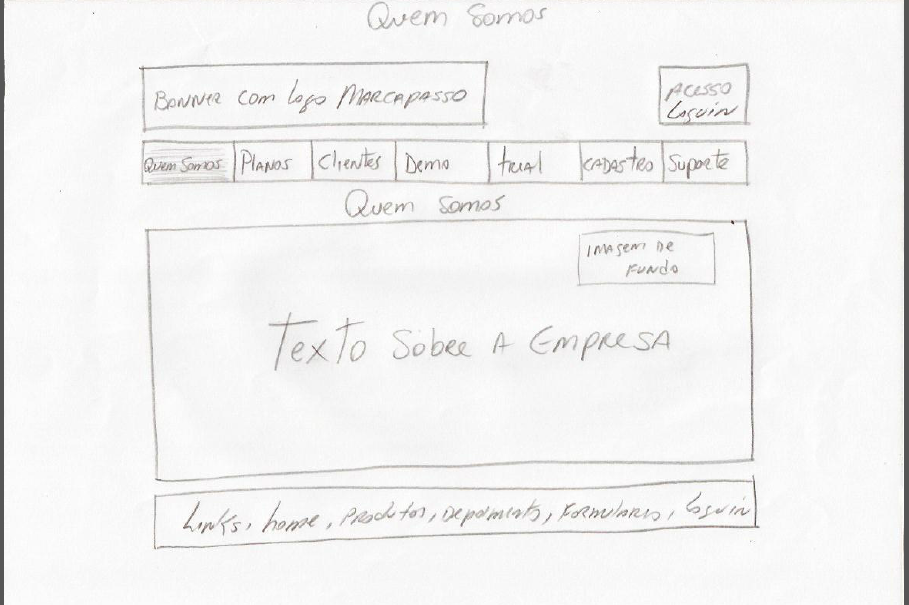 Quem Somos
Banner com logo MARCAPASSO
Acesso
Loguin
Quem Somos Planos Clientes Demo trial CADASTRO Suporte
Quem Somos
Imagem de
Fundo
Texto Sobre A Empresa
Links, home, Produtos, Depoimentos, Formulários, Loguin